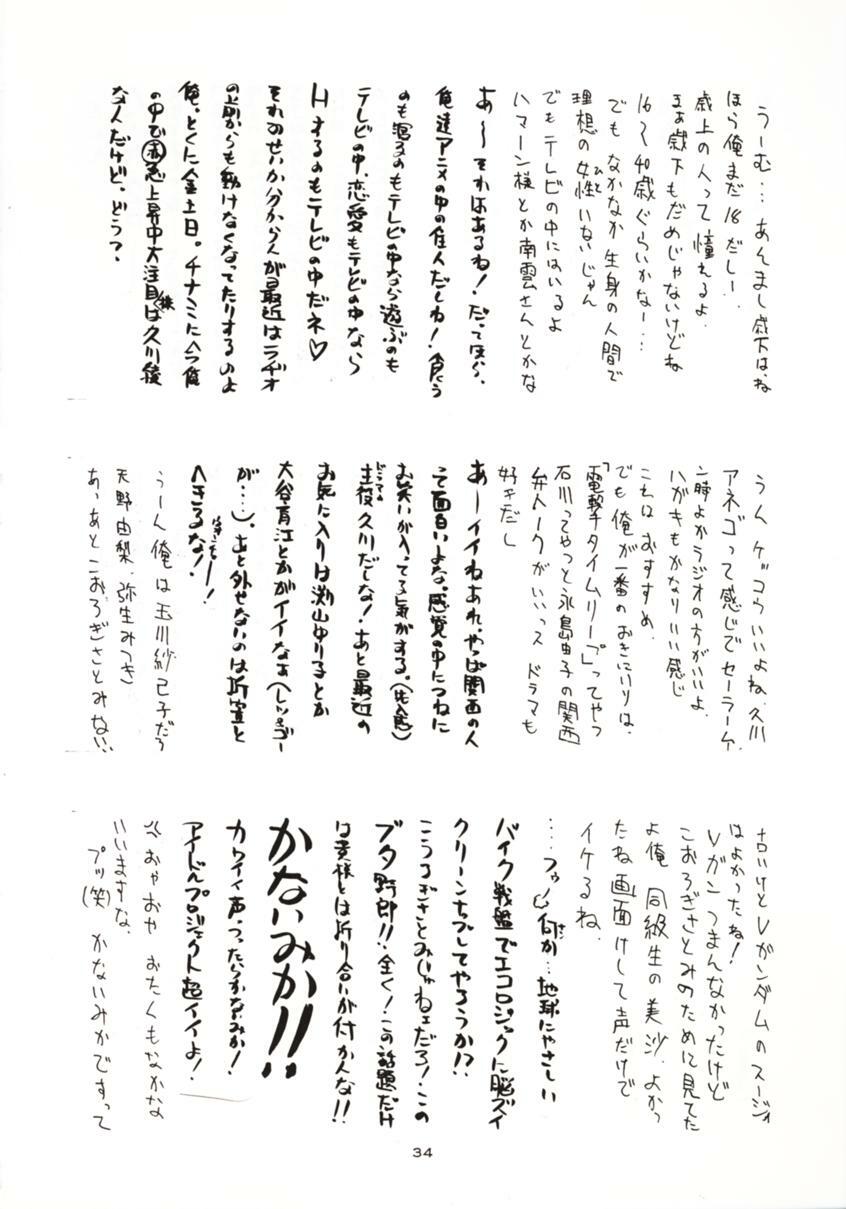 うーむ…あんまし歳下は、ね
ほら俺まだ18だしー、
歳上の人って憧れるよ、
まぁ歳下もだめじゃないけどね
16〜40歳ぐらいかなー…
でもなかなか生身の人間で
理想の女性いないじゃん
ひと
でもテレビの中にはいるよ
ハマーン様とか南雲さんとかな
あ〜それはあるね!だってほら、
俺達アニメの中の住人だしね!食う
のも寝るのもテレビの中なら遊ぶのも
テレビの中、恋愛もテレビの中なら
Hするのもテレビのなかだネ♡
それのせいか分からんが最近はラヂオ
の前からも動けなくなってたりするのよ
俺。とくに金土日。チナミに今俺
の中で赤丸急上昇中大注目株は久川綾
な人だけど。どう?
うん ケッコウいいよね、久川
アネゴって感じでセーラーケ
ン時よかラジオの方がいいよ、
ハガキもかなりいい感じ
これはおすすめ、
でも俺が一番のおきにいりは、
「電撃チタイムリープ」ってやつ
石川ってやつと永島由子の関西
弁トークがいいっス ドラマも
好キだし
あーイイねあれ、やっぱ関西の人
って面白いよな。感覚の中につねに
お笑いが入ってる気がする。(先入感)
主役久川だしな!あと最近の
お気に入りは渕山ゆりるとか
大谷育江とかがイイなぁ(レッツ・ゴー
が…)。あと外せないのは折笠と
へきるな!
うーん俺は玉川紗己子だろ
天野由梨、弥生みつき
あ、あとこおろぎさとみない、
古いけどVガンダムのスージィ
はよかったね!
Vガンつまんなかったけど
こおろぎさとみのために見てた
よ俺 同級生の美沙、よかっ
たね画面けして声だけで
イケるね、
…フゥ 何か…地球にやさしい
バイク戦艦でエコロジックに脳ズイ
クリーンナップしてやろうか!?
こうろぎさとみじゃねェだろ!この
ブタ野郎!!全く!この話題だけ
は貴様とは折り合いが付かんな!!
かないみか!!
カワイイ声、つったらかないみか!
アイドルプロジェクト超イイよ!
おやおや おたくもなかな
いいますな、
プッ(笑) かないみかですって
34